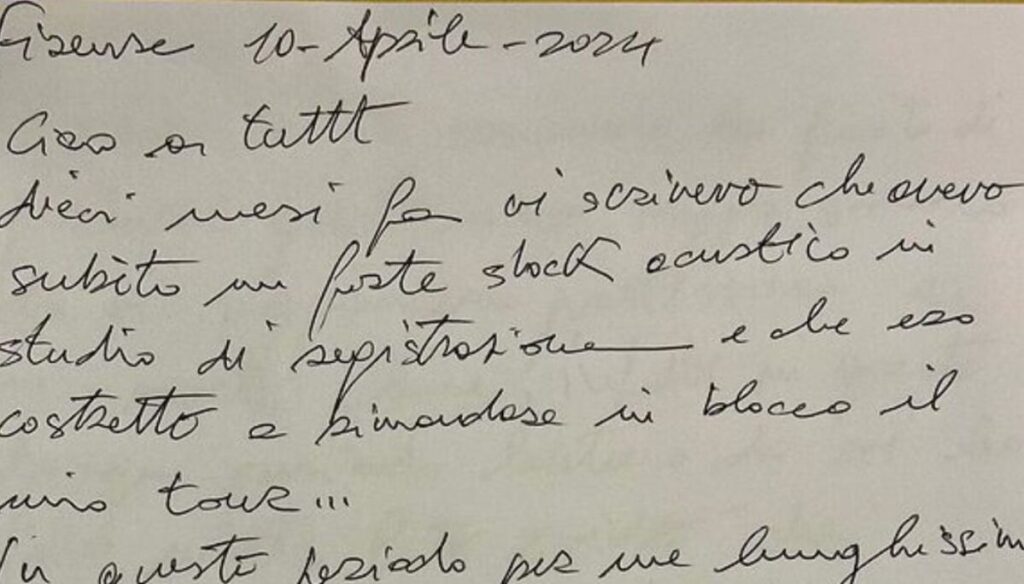 Firenze 10-Aprile-2024
Ciao a tutti
dieci mesi fa vi scrivevo che avevo
subito un forte shock acustico in
studio di registrazione e che ero
costretto a rimandare in blocco il
mio tour...
In questo periodo per me lunghissim